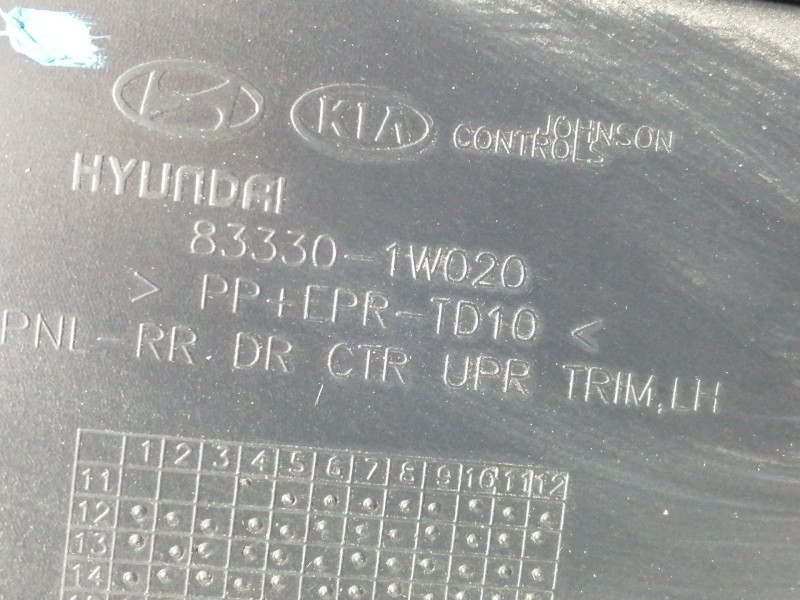 KIA
JOHNSON
CONTROLS
HYUNDAI
83330-1W020
> PP+EPR-TD10 <
PNL-RR DR CTR UPR TRIM,LH
1 2 3 4 5 6 7 8 9 10 11 12
11
12
13
14